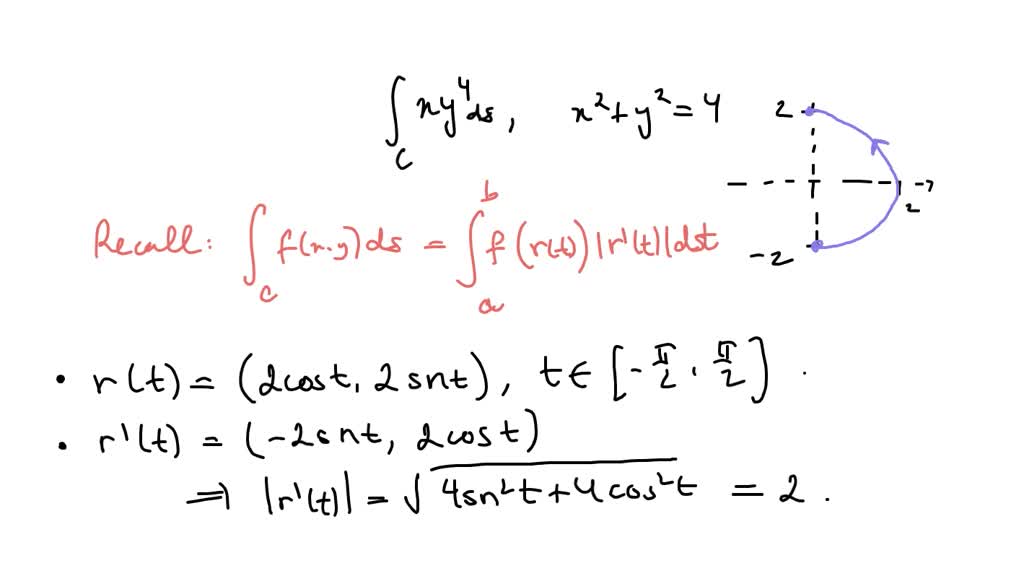 ∫_C xy⁴ds, x²+y²=4
2
2
-2
Recall: ∫_C f(x,y)ds = ∫_a^b f(r(t))|r'(t)|dst
• r(t) = (2cost, 2snt), t∈[-π/2, π/2].
• r'(t) = (-2snt, 2cost)
⇒ |r'(t)| = √(4sn²t+4cos²t) = 2.